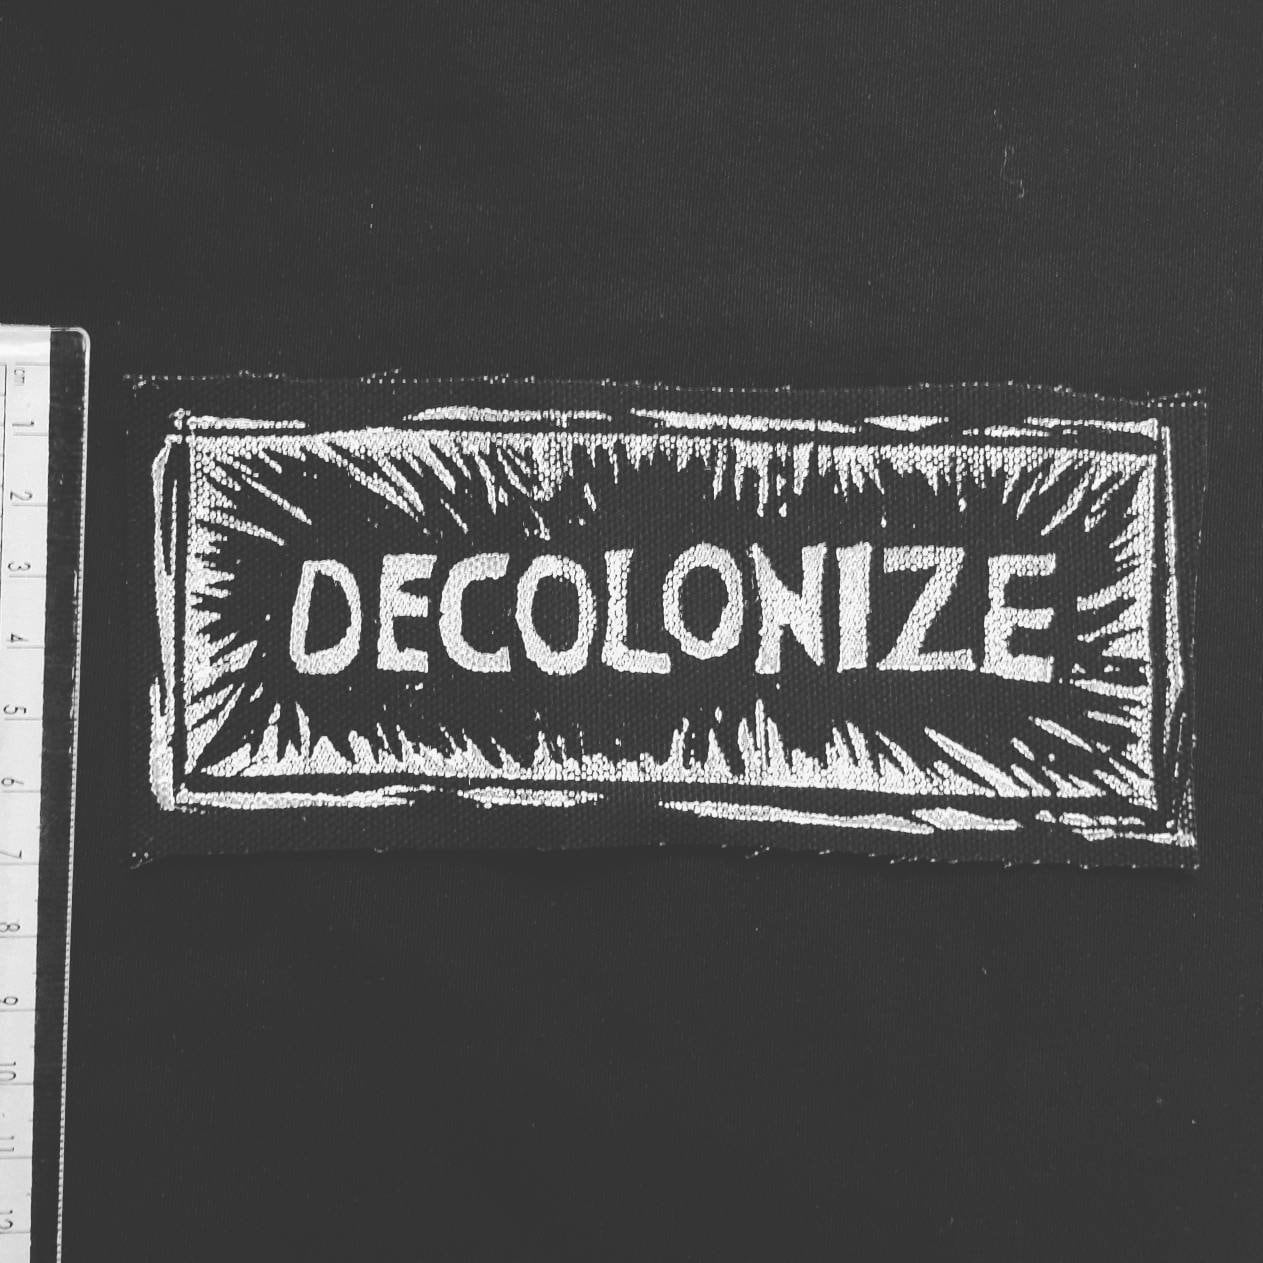 cm
1
2
3
4
5
6
7
8
9
10
11
12
DECOLONIZE